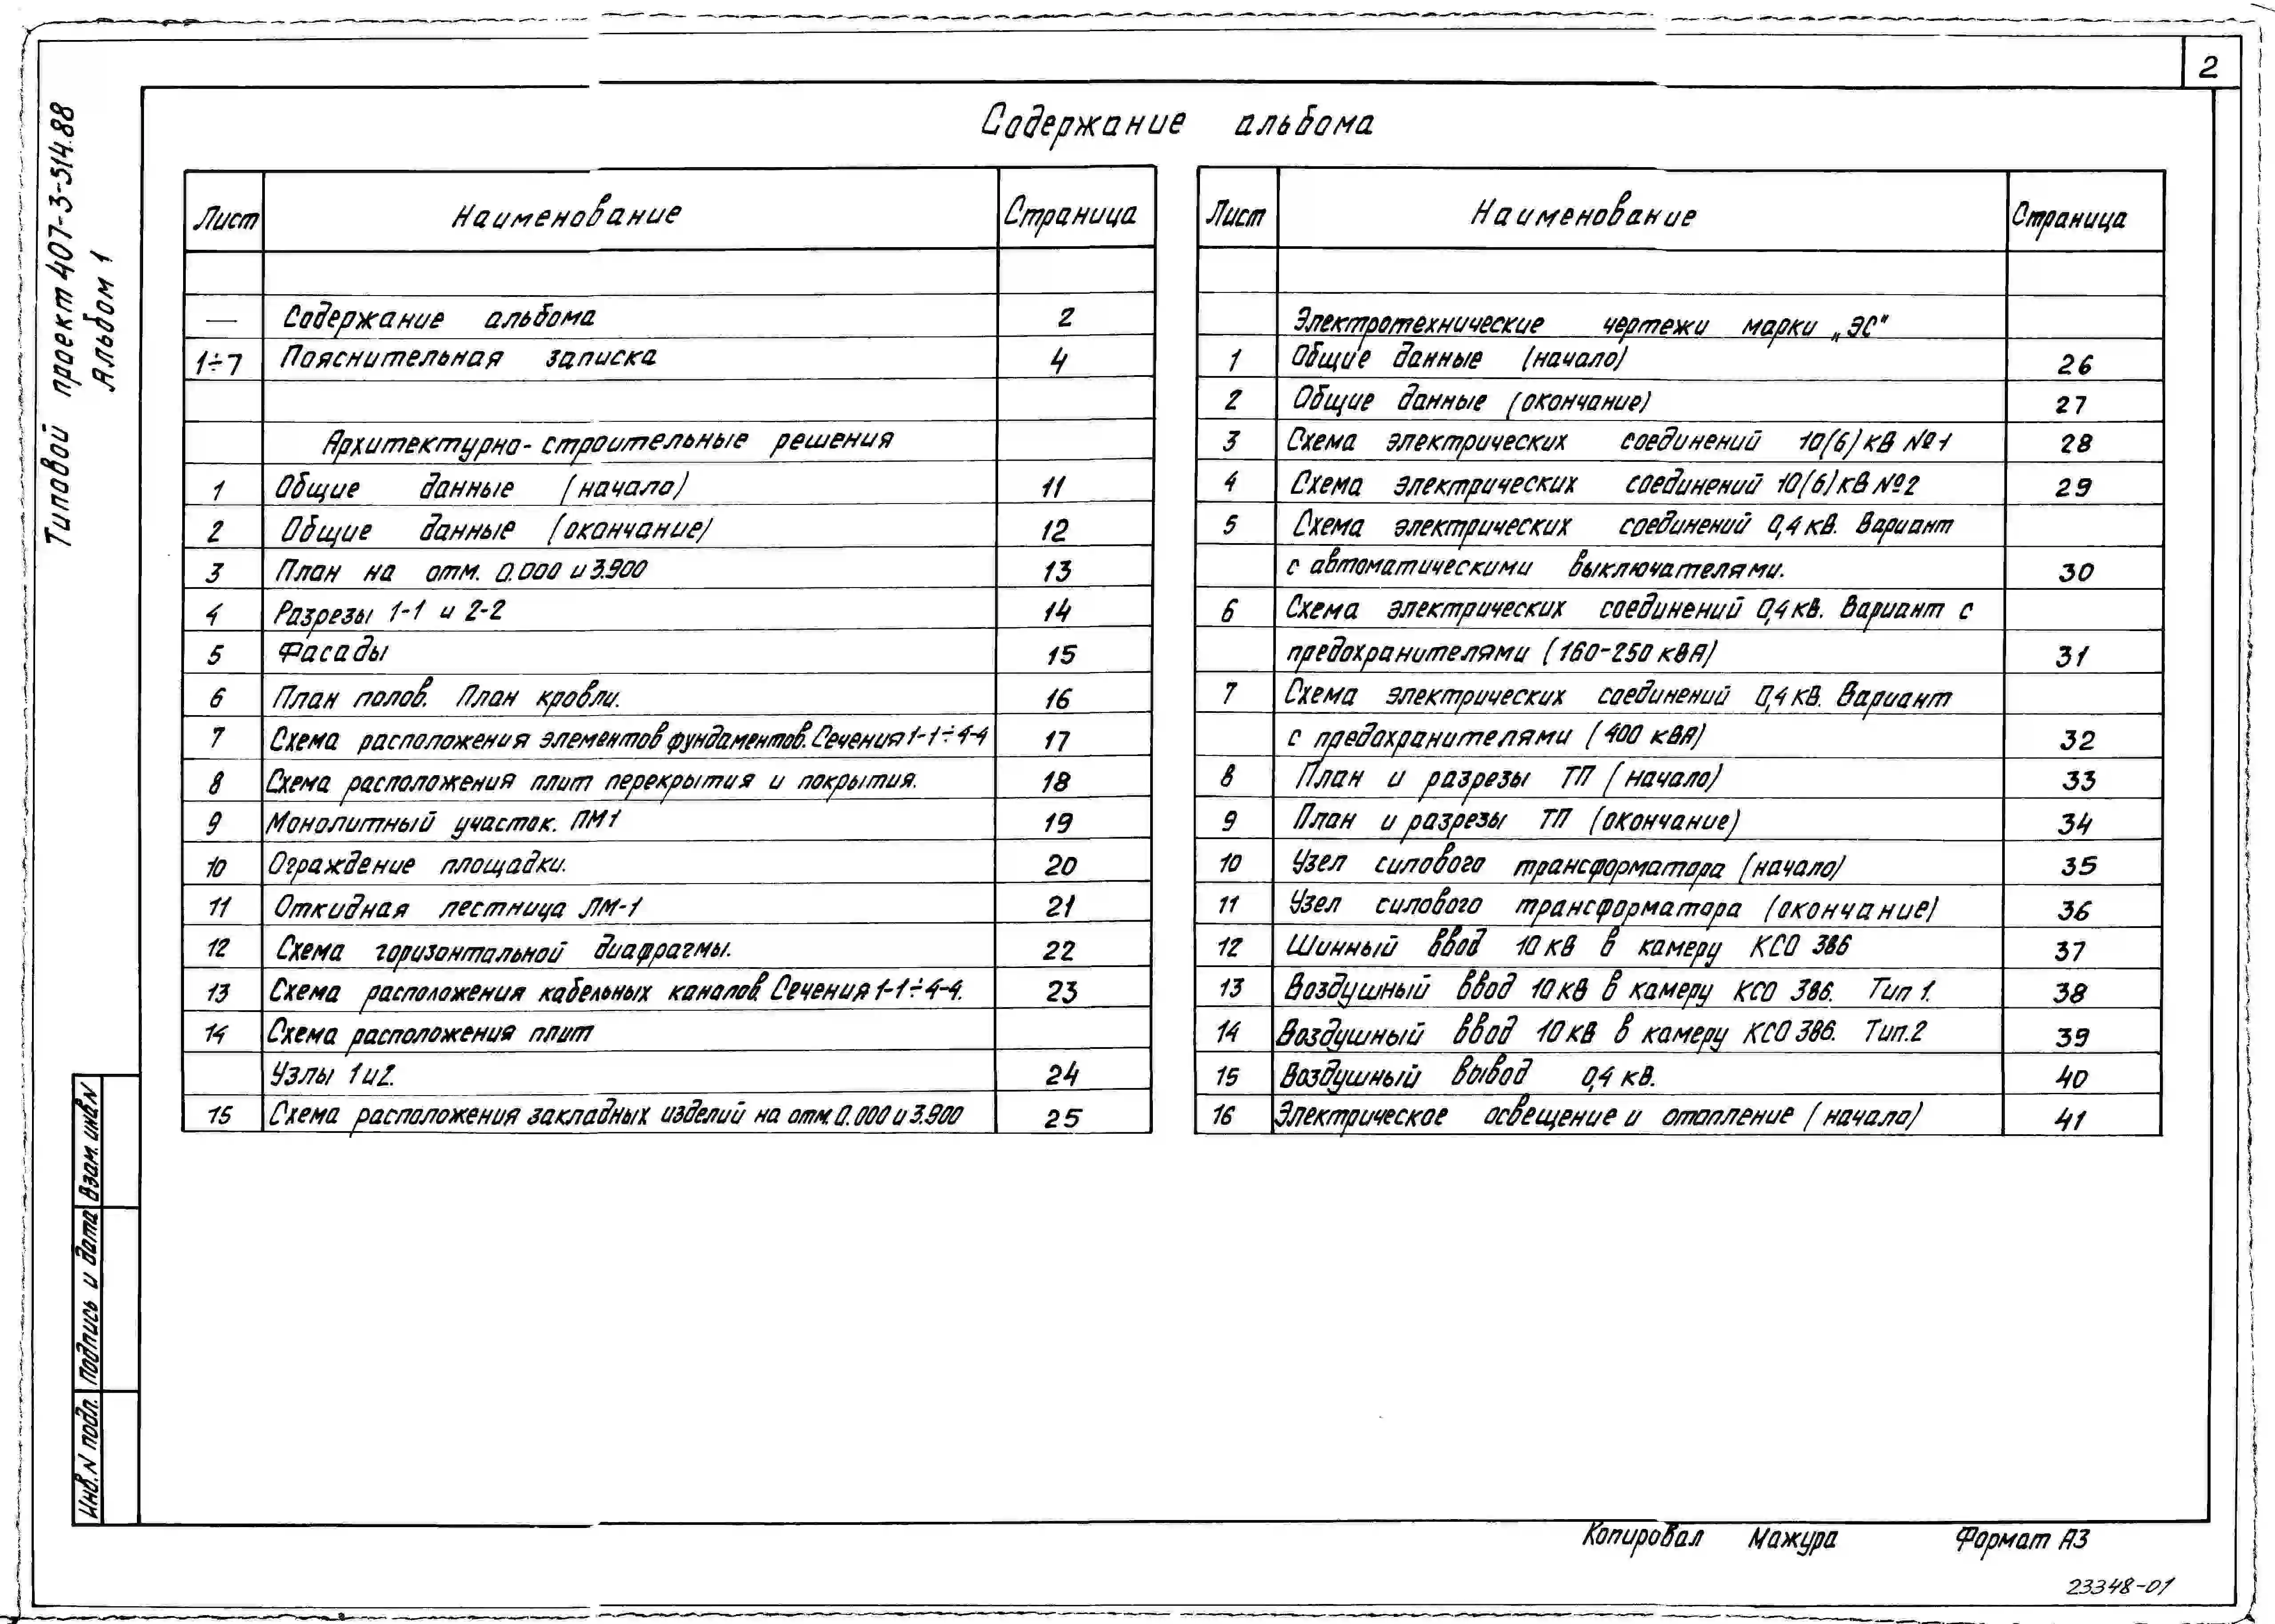 2
Типовой проект 407-3-514.88
Альбом 1
Содержание альбома
Лист Наименование Страница
— Содержание альбома 2
1÷7 Пояснительная записка 4
Архитектурно-строительные решения
1 Общие данные (начало) 11
2 Общие данные (окончание) 12
3 План на отм. 0.000 и 3.900 13
4 Разрезы 1-1 и 2-2 14
5 Фасады 15
6 План полов. План кровли. 16
7 Схема расположения элементов фундаментов. Сечения 1-1÷4-4 17
8 Схема расположения плит перекрытия и покрытия. 18
9 Монолитный участок. ПМ1 19
10 Ограждение площадки. 20
11 Откидная лестница ЛМ-1 21
12 Схема горизонтальной диафрагмы. 22
13 Схема расположения кабельных каналов. Сечения 1-1÷4-4. 23
14 Схема расположения плит
Узлы 1 и 2. 24
15 Схема расположения закладных изделий на отм. 0.000 и 3.900 25
Лист Наименование Страница
Электротехнические чертежи марки „ЭС"
1 Общие данные (начало) 26
2 Общие данные (окончание) 27
3 Схема электрических соединений 10(6) кВ №1 28
4 Схема электрических соединений 10(6) кВ №2 29
5 Схема электрических соединений 0,4 кВ. Вариант
с автоматическими выключателями. 30
6 Схема электрических соединений 0,4 кВ. Вариант с
предохранителями (160-250 кВА) 31
7 Схема электрических соединений 0,4 кВ. Вариант
с предохранителями (400 кВА) 32
8 План и разрезы ТП (начало) 33
9 План и разрезы ТП (окончание) 34
10 Узел силового трансформатора (начало) 35
11 Узел силового трансформатора (окончание) 36
12 Шинный ввод 10 кВ в камеру КСО 386 37
13 Воздушный ввод 10 кВ в камеру КСО 386. Тип 1. 38
14 Воздушный ввод 10 кВ в камеру КСО 386. Тип.2 39
15 Воздушный вывод 0,4 кВ. 40
16 Электрическое освещение и отопление (начало) 41
Взам. инв. N
Подпись и дата
Инв. N подл.
Копировал Мажура Формат А3
23348-01